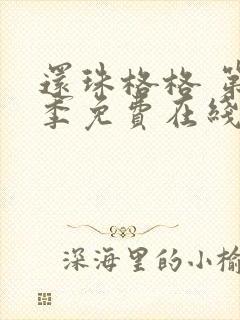 還珠格格 第
季免費在綫
深海里的小榆